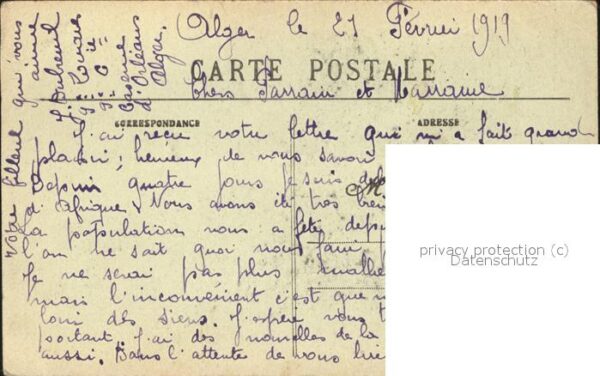 Alger le 21 Février 1919
CARTE POSTALE
Chers Parrain et Marraine
CORRESPONDANCE
ADRESSE
J'ai reçu votre lettre qui m'a fait grand
plaisir; heureux de vous savoir
Depuis quatre jours je suis
d'Afrique. Nous avons été très
la population nous a fêté
l'on ne sait quoi nous
Je ne serai pas plus
mais l'inconvénient c'est que
loin des siens. J'espère vous
portant. J'ai des nouvelles de la
aussi. Dans l'attente de vous lire
Votre filleul qui vous
aime
J. Dubreuil
9e Cie
Caserne
d'Orléans
Alger.
privacy protection (c)
Datenschutz